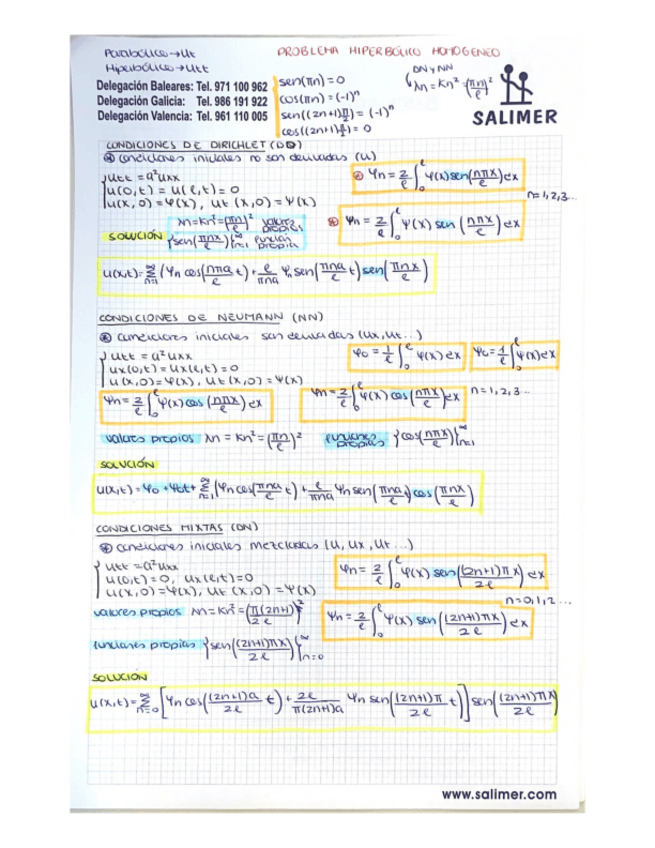 Parabólico → Ut
PROBLEMA HIPERBÓLICO HOMOGENEO
Hiperbólico → Utt
DN y NN
λn = Kn² = (πn/ℓ)²
Delegación Baleares: Tel. 971 100 962
Delegación Galicia: Tel. 986 191 922
Delegación Valencia: Tel. 961 110 005
sen(πn) = 0
cos(πn) = (-1)ⁿ
sen((2n+1)π/2) = (-1)ⁿ
cos((2n+1)π/2) = 0
SALIMER
CONDICIONES DE DIRICHLET (DD)
condiciones iniciales no son derivadas (u)
Utt = a²Uxx
u(0,t) = u(ℓ,t) = 0
u(x,0) = φ(x), ut(x,0) = ψ(x)
φn = 2/ℓ ∫₀^ℓ φ(x) sen(nπx/ℓ) dx
n = 1, 2, 3...
ψn = 2/ℓ ∫₀^ℓ ψ(x) sen(nπx/ℓ) dx
λn = Kn² = (πn/ℓ)² valores propios
SOLUCIÓN {sen(πnx/ℓ)}∞n=1 función propia
u(x,t) = ∞Σn=1 (φn cos(nπa/ℓ t) + ℓ/πna ψn sen(πna/ℓ t) sen(πnx/ℓ)
CONDICIONES DE NEUMANN (NN)
condiciones iniciales son derivadas (ux, ut...)
Utt = a²Uxx
ux(0,t) = Ux(ℓ,t) = 0
u(x,0) = φ(x), ut(x,0) = ψ(x)
φ0 = 1/ℓ ∫₀^ℓ φ(x) dx
ψ0 = 1/ℓ ∫₀^ℓ ψ(x) dx
φn = 2/ℓ ∫₀^ℓ φ(x) cos(nπx/ℓ) dx
ψn = 2/ℓ ∫₀^ℓ ψ(x) cos(nπx/ℓ) dx
n = 1, 2, 3...
valores propios λn = Kn² = (πn/ℓ)² funciones propias {cos(nπx/ℓ)}∞n=1
SOLUCIÓN
u(x,t) = φ0 + ψ0t + ∞Σn=1 (φn cos(πna/ℓ t) + ℓ/πna ψn sen(πna/ℓ t) cos(πnx/ℓ)
CONDICIONES MIXTAS (DN)
condiciones iniciales mezcladas (u, ux, ut...)
Utt = a²Uxx
u(0,t) = 0, ux(ℓ,t) = 0
u(x,0) = φ(x), ut(x,0) = ψ(x)
φn = 2/ℓ ∫₀^ℓ φ(x) sen((2n+1)πx/2ℓ) dx
n = 0, 1, 2...
valores propios λn = Kn² = (π(2n+1)/2ℓ)²
ψn = 2/ℓ ∫₀^ℓ ψ(x) sen((2n+1)πx/2ℓ) dx
funciones propias {sen((2n+1)πx/2ℓ)}∞n=0
SOLUCIÓN
u(x,t) = ∞Σn=0 [φn cos((2n+1)a/2ℓ t) + 2ℓ/π(2n+1)a ψn sen((2n+1)π/2ℓ t)] sen((2n+1)πx/2ℓ)
www.salimer.com